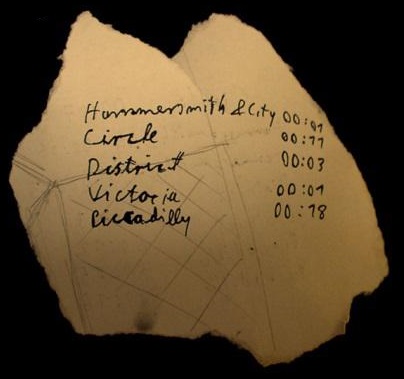 Hammersmith & City 00:01
Circle 00:11
District 00:03
Victoria 00:01
Piccadilly 00:18